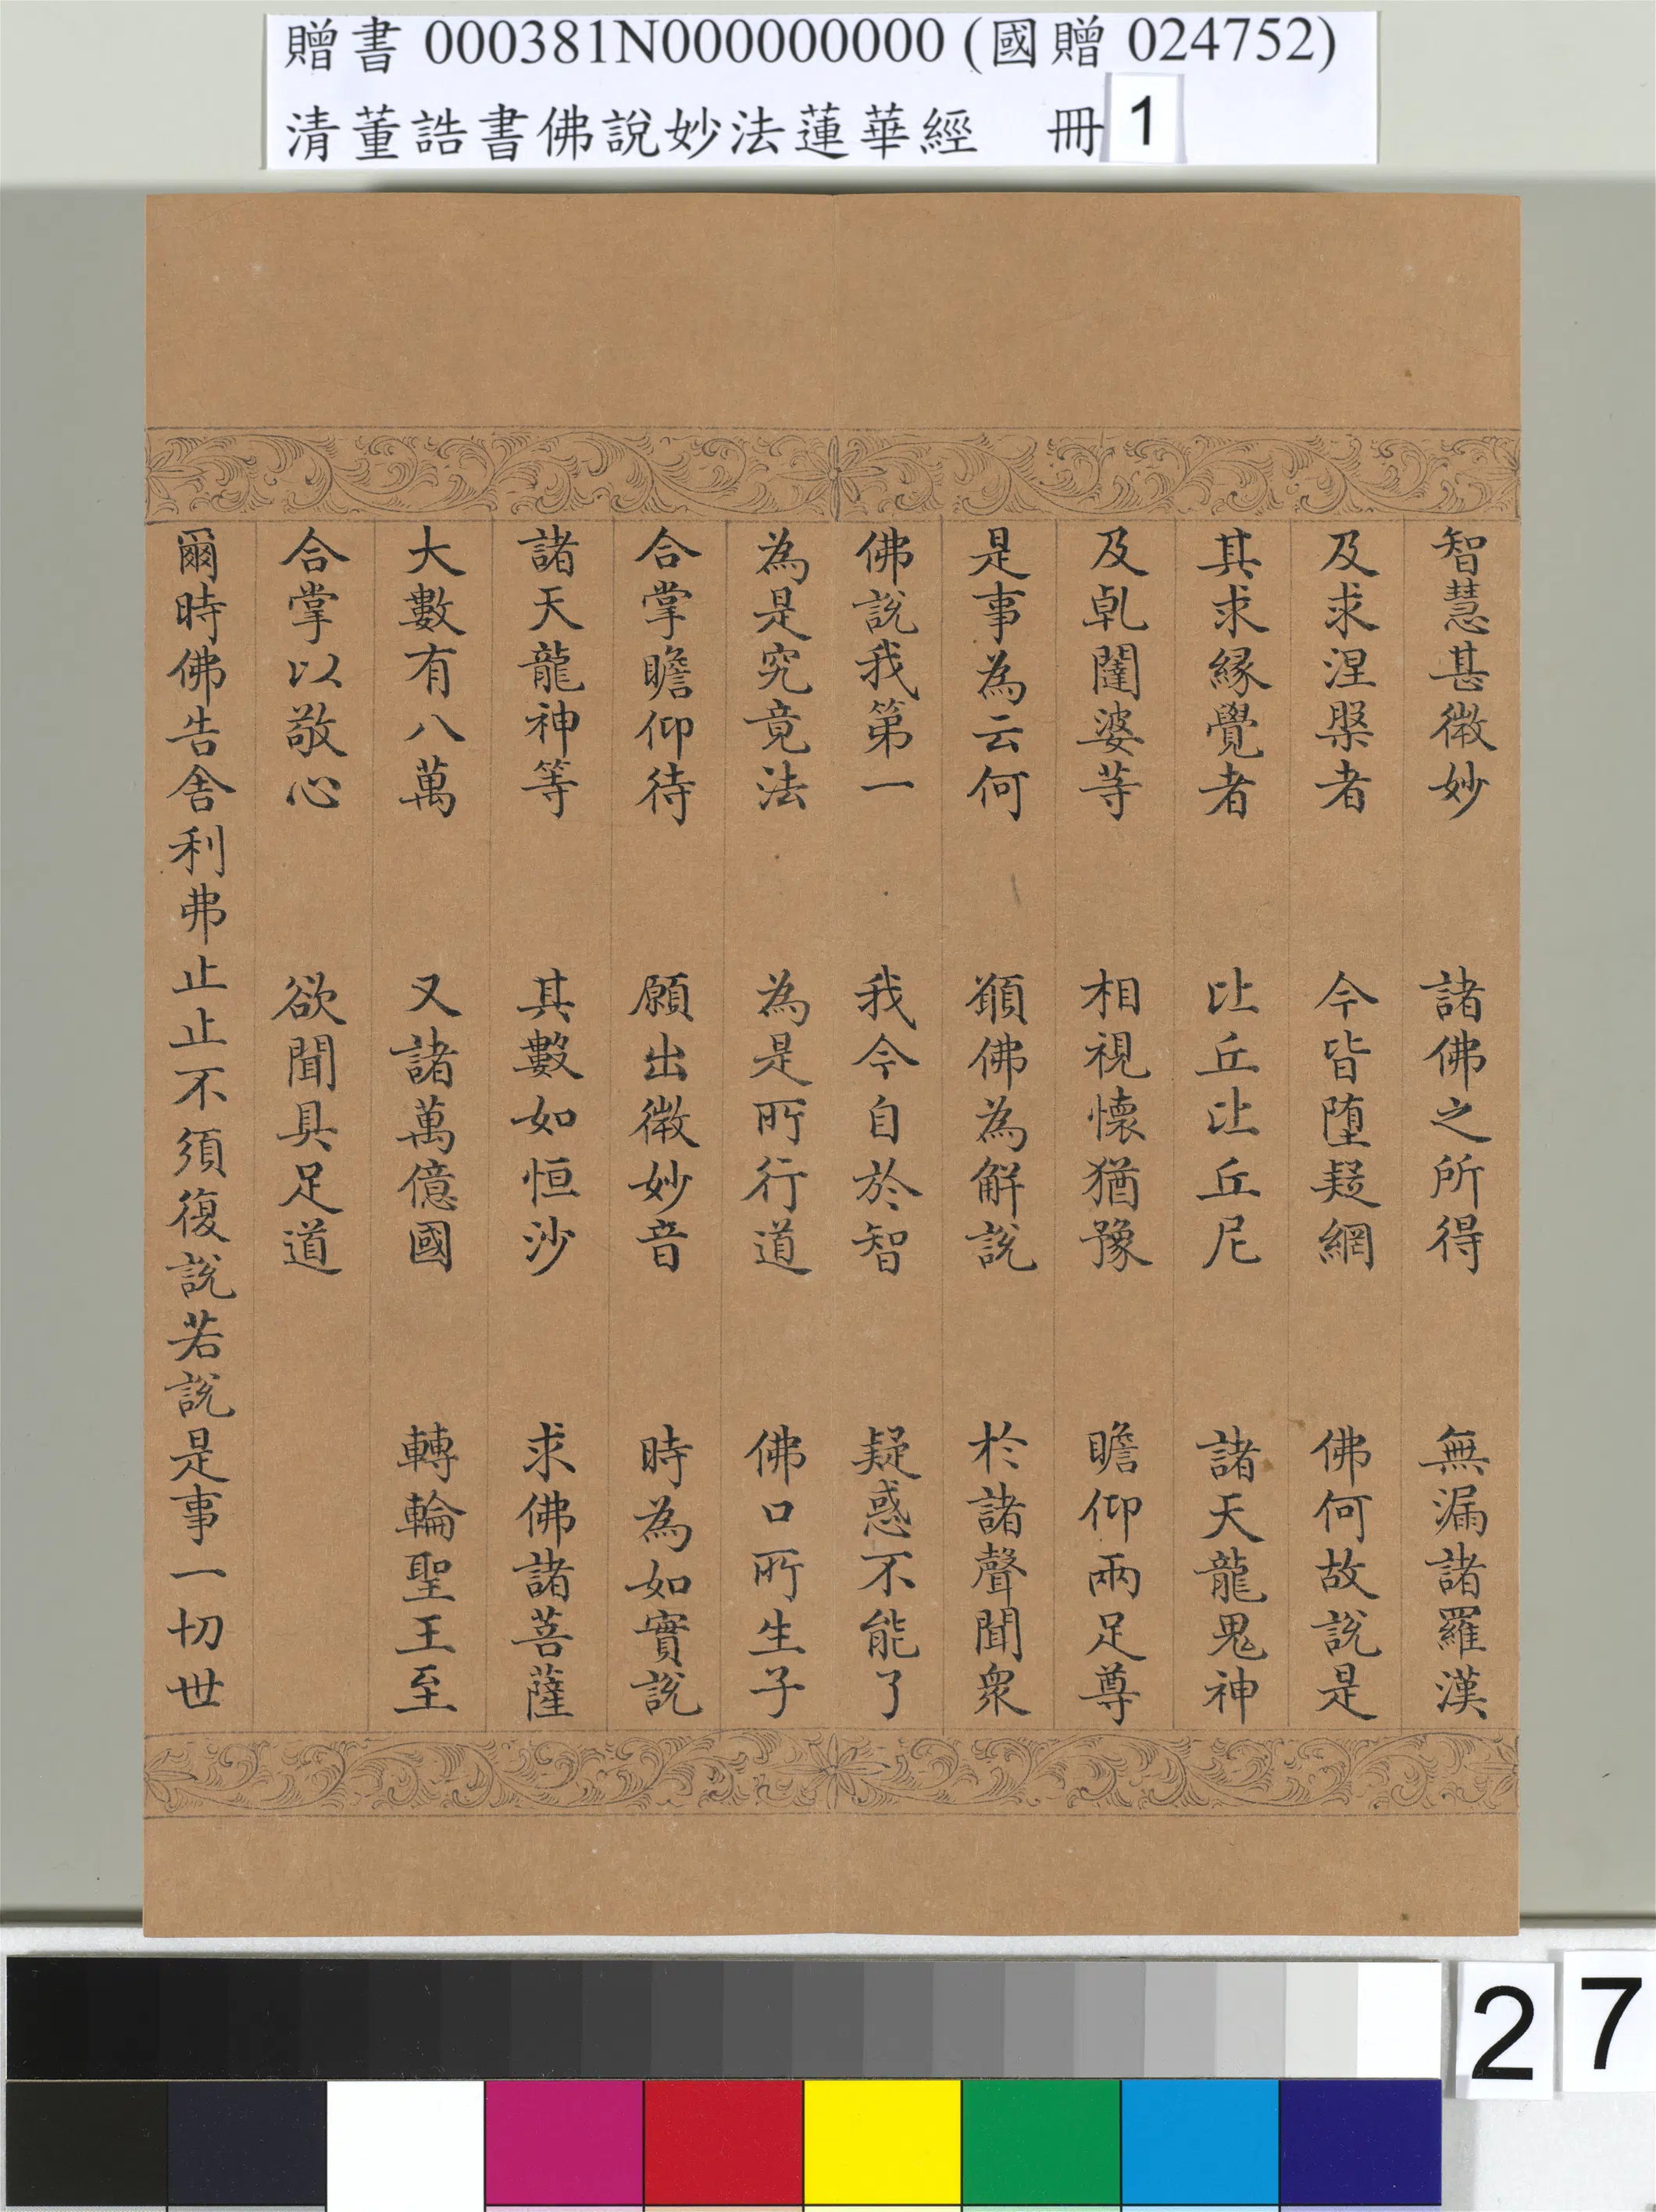 贈書 000381N000000000 (國贈 024752)
清董誥書佛說妙法蓮華經 冊 1
智慧甚微妙 諸佛之所得 無漏諸羅漢
及求涅槃者 今皆墮疑網 佛何故說是
其求緣覺者 比丘比丘尼 諸天龍鬼神
及乹闥婆等 相視懷猶豫 瞻仰兩足尊
是事為云何 願佛為解說 於諸聲聞眾
佛說我第一 我今自於智 疑惑不能了
為是究竟法 為是所行道 佛口所生子
合掌瞻仰待 願出微妙音 時為如實說
諸天龍神等 其數如恒沙 求佛諸菩薩
大數有八萬 又諸萬億國 轉輪聖王至
合掌以敬心 欲聞具足道
爾時佛告舍利弗止止不須復說若說是事一切世
27